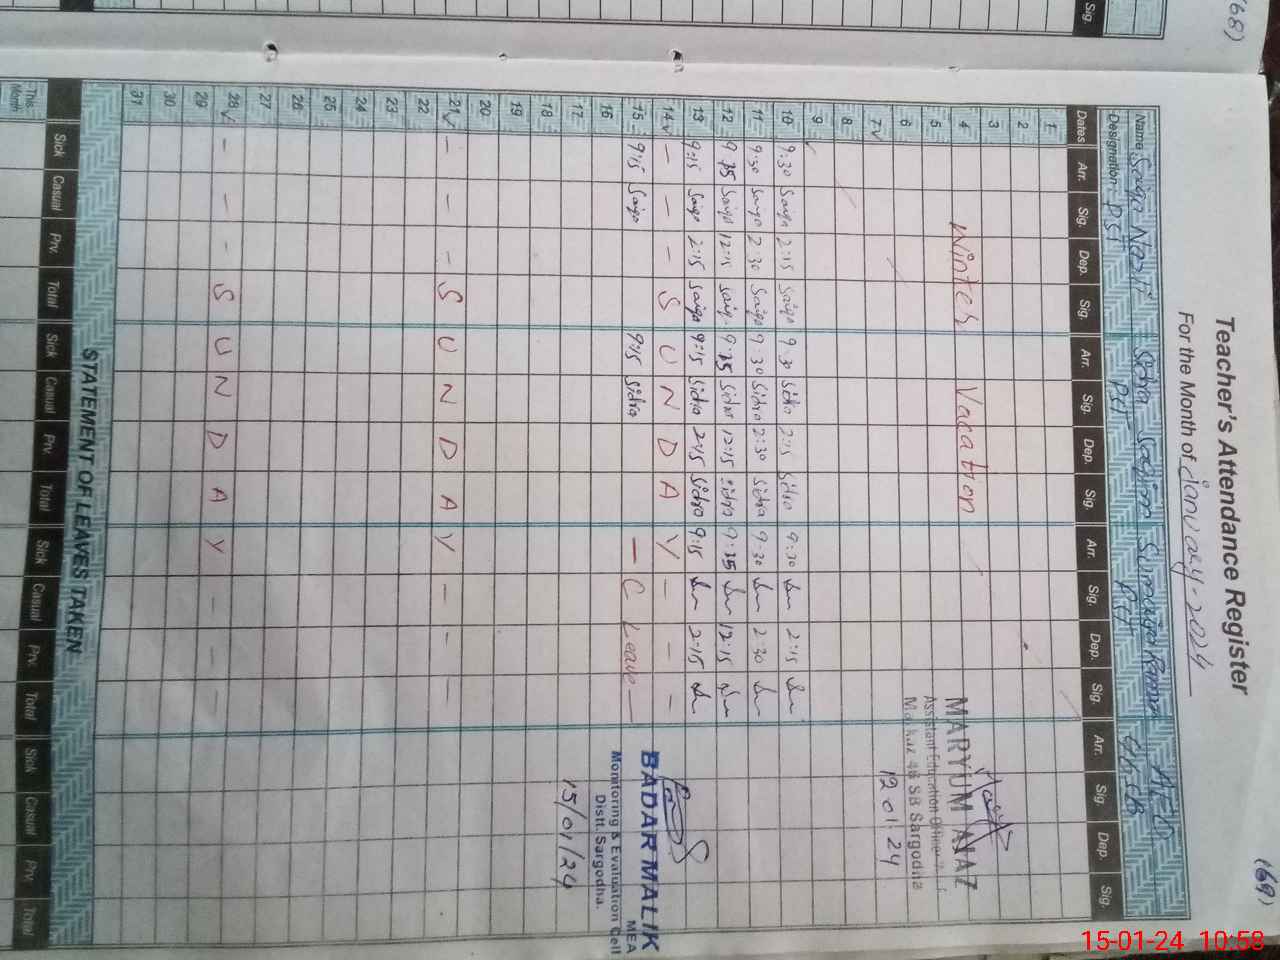 (68)
Sig.
(69)
Teacher's Attendance Register
For the Month of January-2024
Name Saiqa Nazir Sidra Saqim Sumaira Ramzan
Designation: PST PST PST
Dates Arr. Sig. Dep. Sig. Arr. Sig. Dep. Sig. Arr. Sig. Dep. Sig. Arr. Sig. Dep. Sig.
1
2
3
4 Winter Vacation
5
6
7
8
9
MARYUM AJAZ
Assistant Education Officer
Markaz 46 SB Sargodha
12 01 24
10 9:30 Saiqa 2:15 Saiqa 9:30 Sidra 2:15 Sidra 9:30 2:15
11 9:30 Saiqa 2:30 Saiqa 9:30 Sidra 2:30 Sidra 9:30 2:30
12 9:15 Saiqa 12:15 Saiqa 9:15 Sidra 12:15 Sidra 9:15 12:15
13 9:15 Saiqa 2:15 Saiqa 9:15 Sidra 2:15 Sidra 9:15 2:15
14 - - - S U N D A Y - - -
15 9:15 Saiqa 9:15 Sidra - C Leave -
BADAR MALIK
MEA
Monitoring & Evaluation Cell
Distt. Sargodha.
15/01/24
16
17
18
19
20
21 - - - S U N D A Y - - -
22
23
24
25
26
27
28 - - - S U N D A Y - - -
29
30
31
STATEMENT OF LEAVES TAKEN
Sick Casual Prv. Total Sick Casual Prv. Total Sick Casual Prv. Total Sick Casual Prv. Total
This Month
15-01-24 10:58